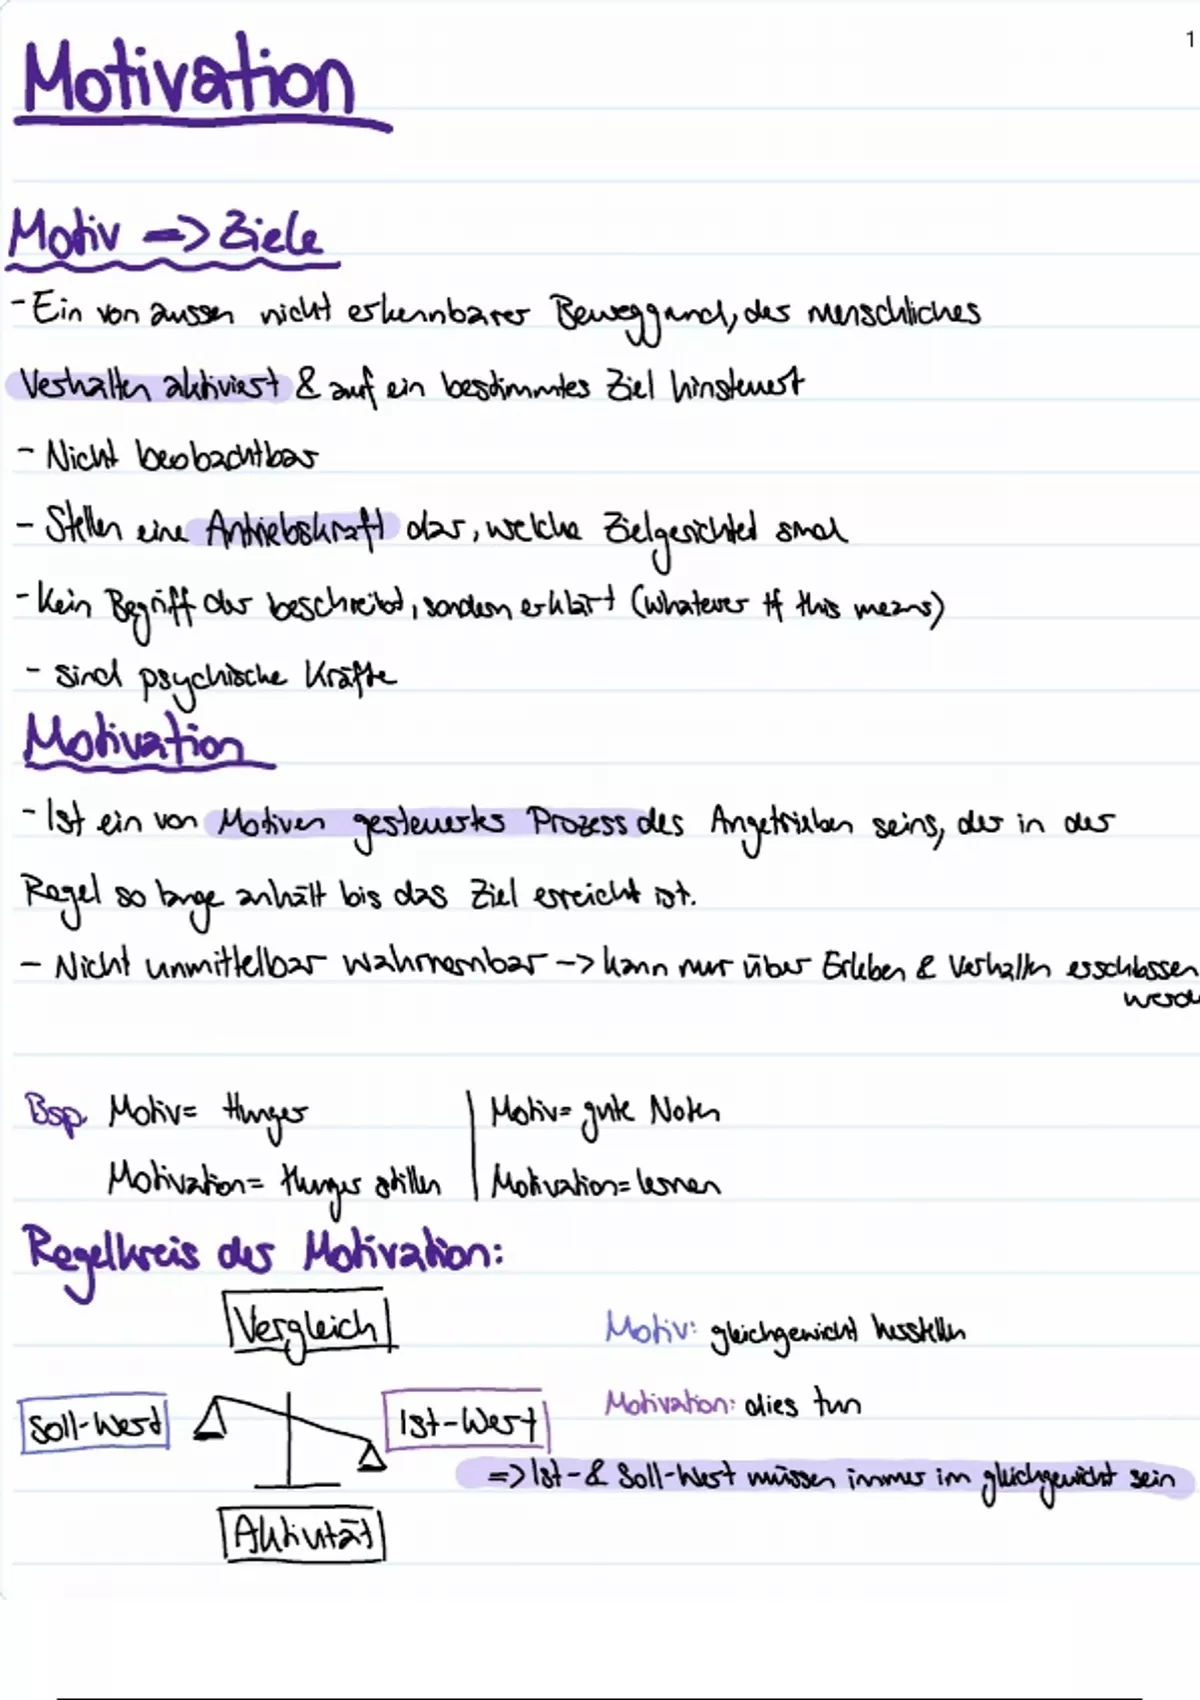 1
Motivation
Motiv => Ziele
- Ein von aussen nicht erkennbarer Beweggrund, der menschliches
Verhalten aktiviert & auf ein bestimmtes Ziel hinsteuert
- Nicht beobachtbar
- Stellen eine Antriebskraft dar, welche Zielgerichted sind
- Kein Begriff der beschreibt, sondern erklärt (whatever tf this means)
- sind psychische Kräfte
Motivation
- Ist ein von Motiven gesteuertes Prozess des Angetrieben seins, der in der
Regel so lange anhält bis das Ziel erreicht ist.
- Nicht unmittelbar wahrnembar -> kann nur über Erleben & Verhalten erschlossen
werde
Bsp. Motiv= Hunger | Motiv= gute Noten
Motivation= Hunger stillen | Motivation= lernen
Regelkreis der Motivation:
Vergleich
Motiv: gleichgewicht herstellen
Soll-Wert Ist-Wert
Motivation: dies tun
=> Ist- & Soll-Wert müssen immer im gleichgewicht sein
Aktivität